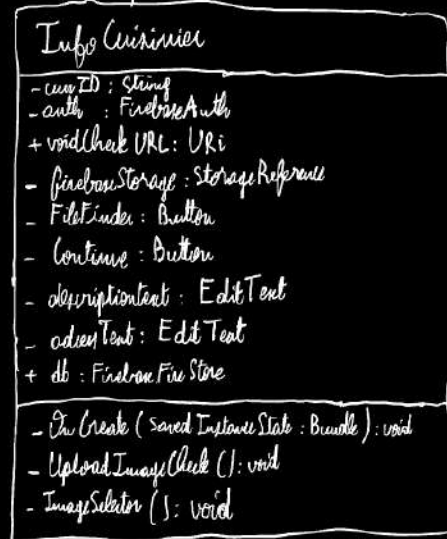 Info Cuisinier
- curr ID : String
- auth : FirebaseAuth
+ voidCheck URL : URi
- firebaseStorage : StorageReference
- FileFinder : Button
- Continue : Button
- descriptiontext : EditText
- adressText : Edit Text
+ db : Firebase Fire Store
- On Create ( Saved Instance State : Bundle ) : void
- Upload Image Check () : void
- Image Selector () : void